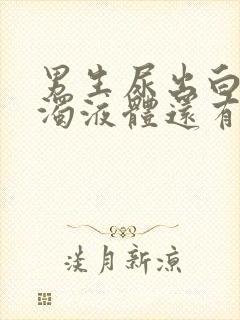 男生尿出白
濁液體還有
淡月新涼